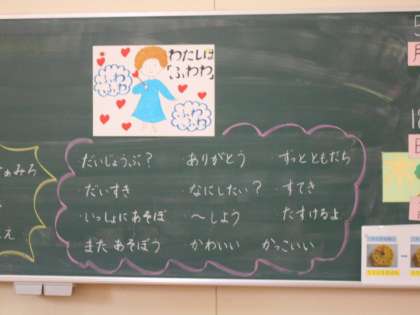 わたしは
「ふわわ」
ふわ
ふわ
ふわ
ふわ
・だいじょうぶ？ ・ありがとう ・ずっとともだち
・だいすき ・なにしたい？ ・すてき
・いっしょにあそぼ ・～しよう たすけるよ
またあそぼう ・かわいい ・かっこいい
月
日